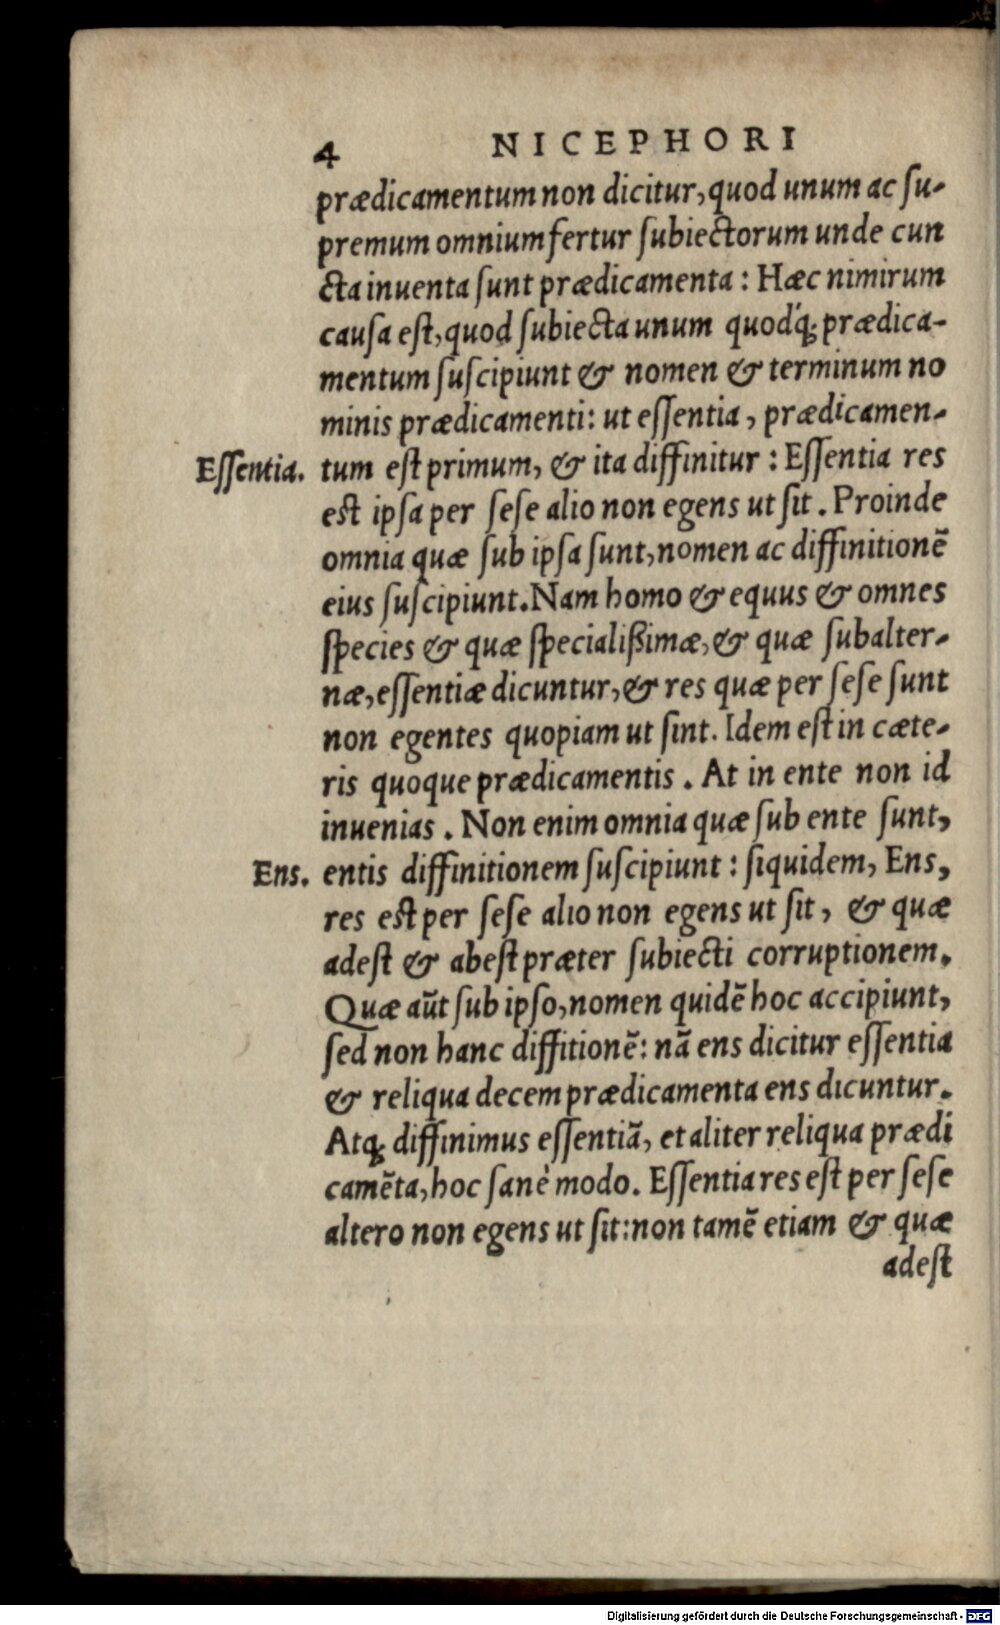 4 NICEPHORI
prædicamentum non dicitur, quod unum ac su-
premum omnium fertur subiectorum unde cun
cta inuenta sunt prædicamenta : Hæc nimirum
causa est, quod subiecta unum quodq́; prædica-
mentum suscipiunt & nomen & terminum no
minis prædicamenti: ut essentia, prædicamen-
Essentia. tum est primum, & ita diffinitur : Essentia res
est ipsa per sese alio non egens ut sit. Proinde
omnia quæ sub ipsa sunt, nomen ac diffinitionē
eius suscipiunt. Nam homo & equus & omnes
species & quæ specialißimæ, & quæ subalter-
næ, essentiæ dicuntur, & res quæ per sese sunt
non egentes quopiam ut sint. Idem est in cæte-
ris quoque prædicamentis. At in ente non id
inuenias. Non enim omnia quæ sub ente sunt,
Ens. entis diffinitionem suscipiunt : siquidem, Ens,
res est per sese alio non egens ut sit, & quæ
adest & abest præter subiecti corruptionem.
Quæ aūt sub ipso, nomen quidē hoc accipiunt,
sed non hanc diffitionē: nā ens dicitur essentia
& reliqua decem prædicamenta ens dicuntur.
Atq; diffinimus essentiā, et aliter reliqua prædi
camēta, hoc sanè modo. Essentia res est per sese
altero non egens ut sit: non tamē etiam & quæ
adest
Digitalisierung gefördert durch die Deutsche Forschungsgemeinschaft - DFG